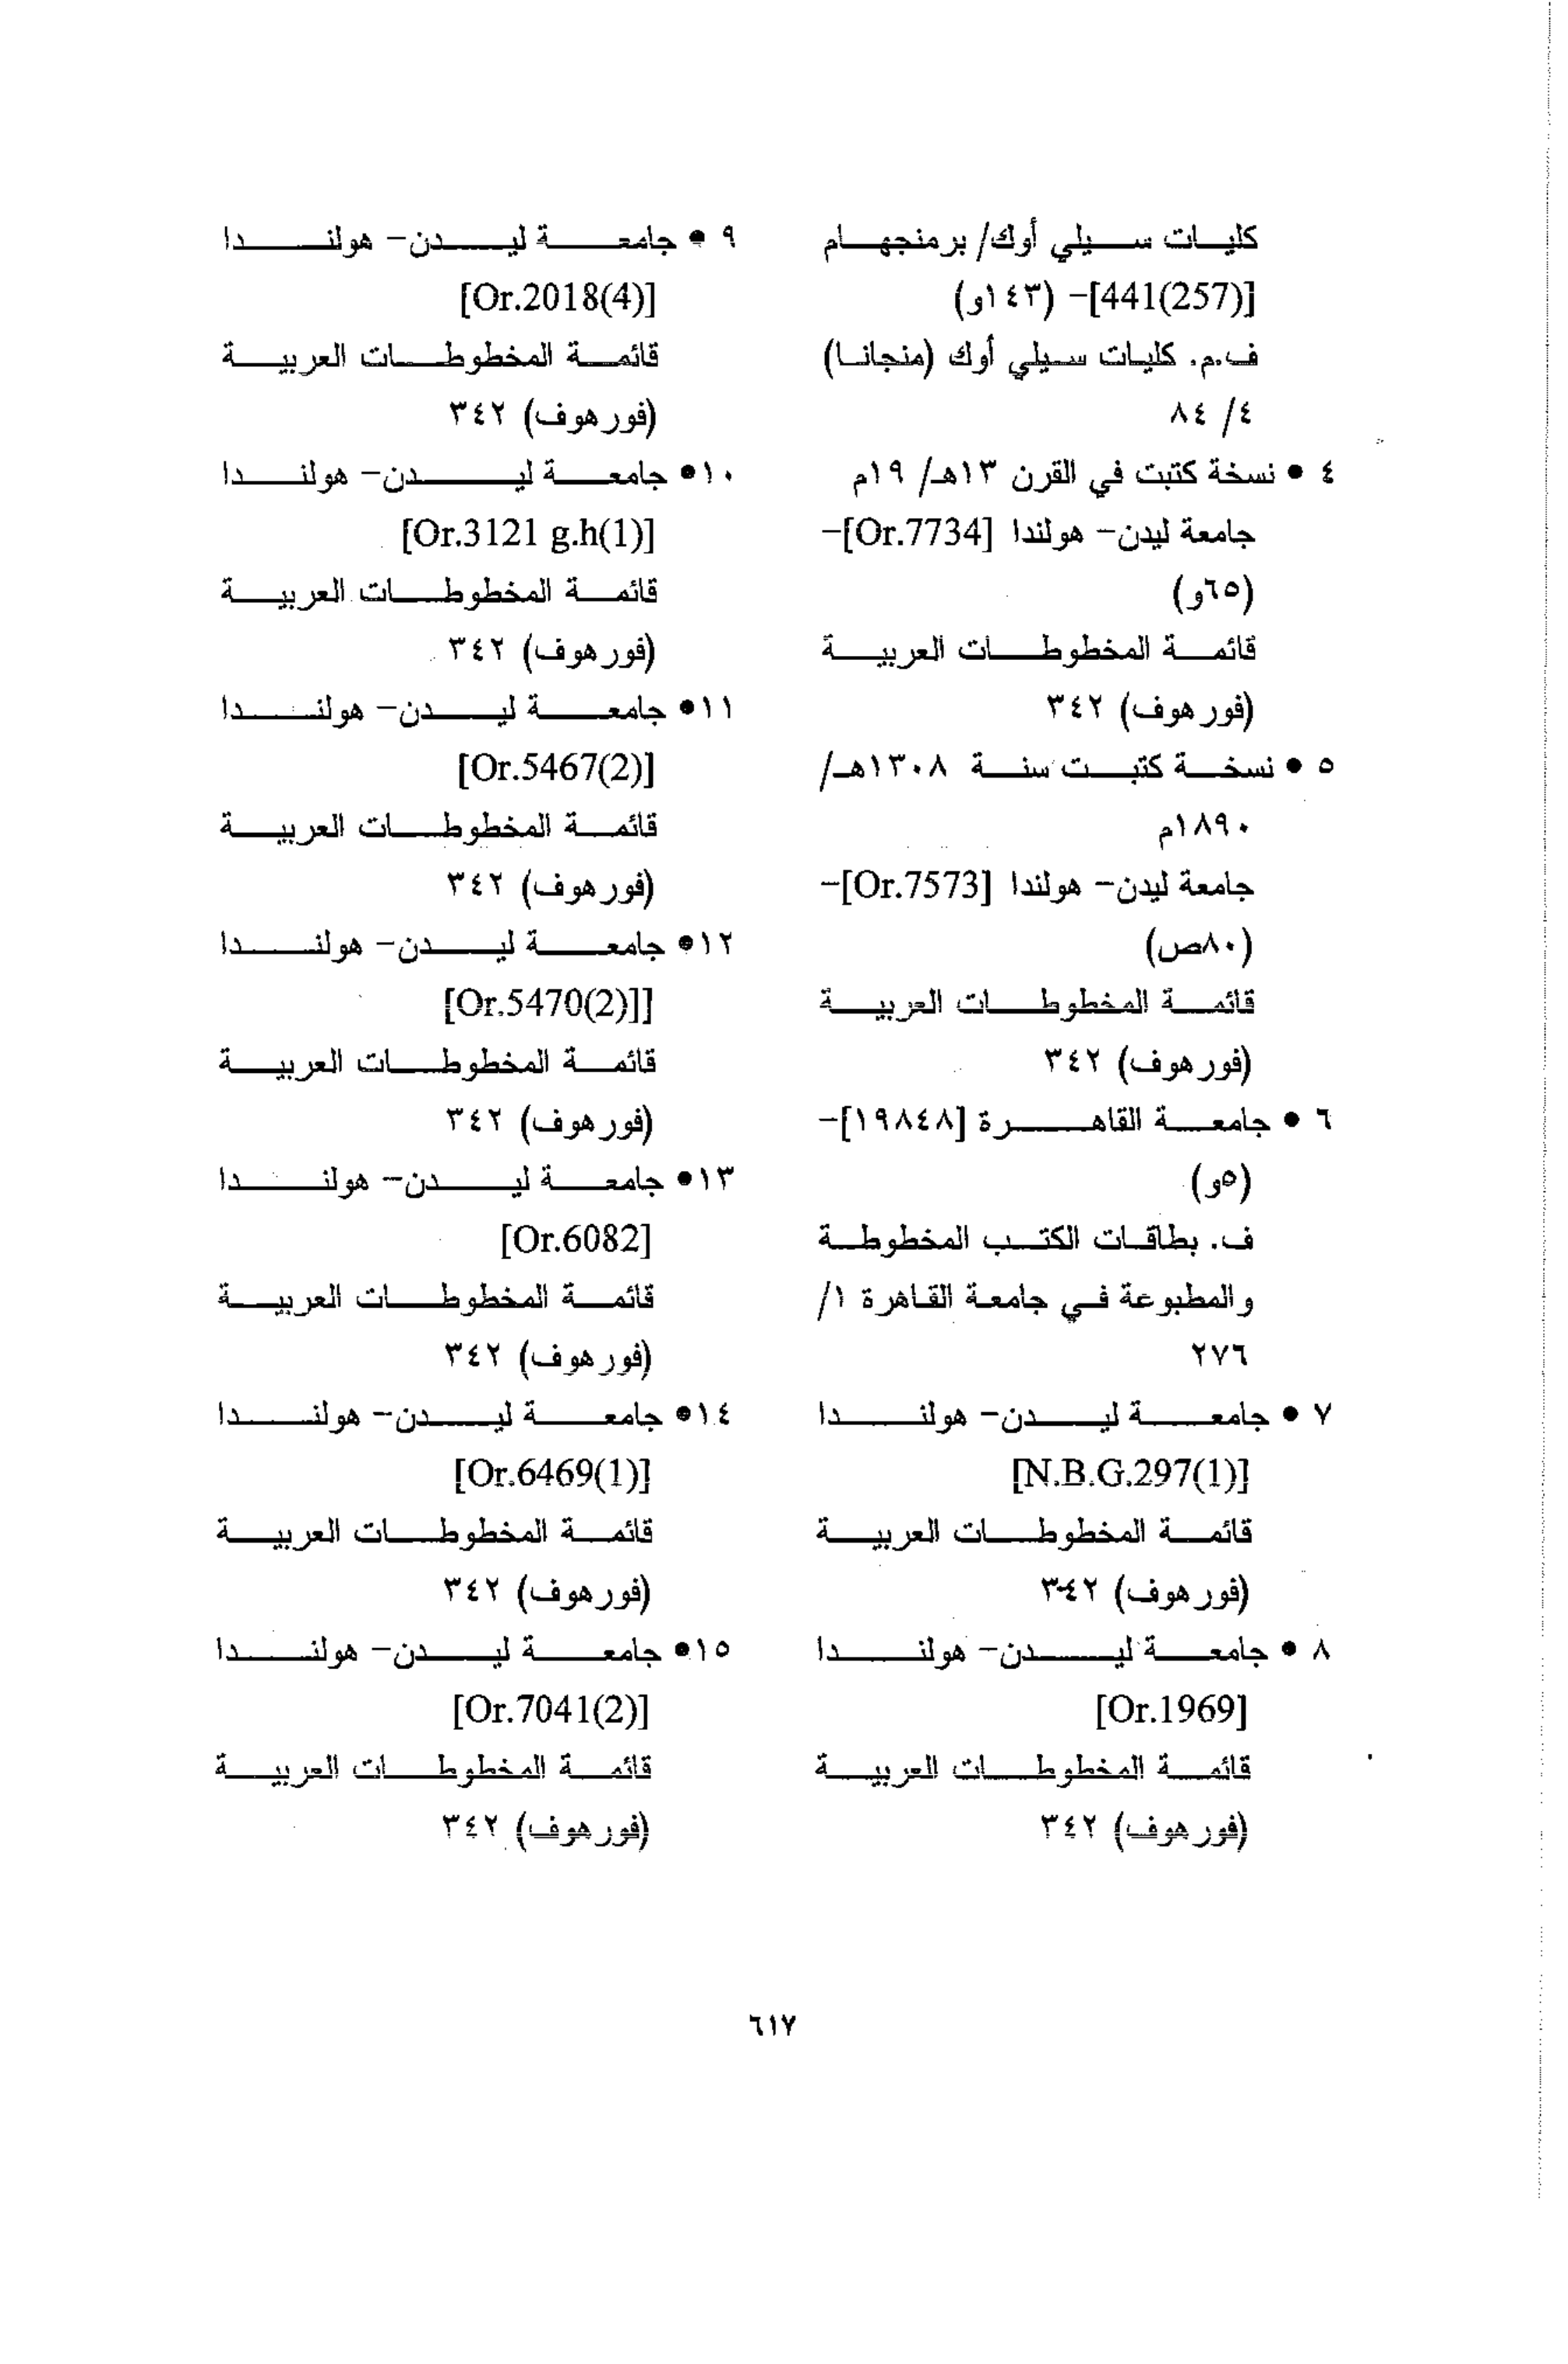 كليات سيلي أوك/ برمنجهام
[441(257)]- (١٤٣و)
ف.م. كليات سيلي أوك (منجانا)
٤/ ٨٤
٤ • نسخة كتبت في القرن ١٣هـ/ ١٩م
جامعة ليدن- هولندا [Or.7734]-
(٦٥و)
قائمة المخطوطات العربية
(فورهوف) ٣٤٢
٥ • نسخة كتبت سنة ١٣٠٨هـ/
١٨٩٠م
جامعة ليدن- هولندا [Or.7573]-
(٨٠ص)
قائمة المخطوطات العربية
(فورهوف) ٣٤٢
٦ • جامعة القاهرة [١٩٨٤٨]-
(٥و)
ف. بطاقات الكتب المخطوطة
والمطبوعة في جامعة القاهرة ١/
٢٧٦
٧ • جامعة ليدن- هولندا
[N.B.G.297(1)]
قائمة المخطوطات العربية
(فورهوف) ٣٤٢
٨ • جامعة ليدن- هولندا
[Or.1969]
قائمة المخطوطات العربية
(فورهوف) ٣٤٢
٩ • جامعة ليدن- هولندا
[Or.2018(4)]
قائمة المخطوطات العربية
(فورهوف) ٣٤٢
١٠• جامعة ليدن- هولندا
[Or.3121 g.h(1)]
قائمة المخطوطات العربية
(فورهوف) ٣٤٢
١١• جامعة ليدن- هولندا
[Or.5467(2)]
قائمة المخطوطات العربية
(فورهوف) ٣٤٢
١٢• جامعة ليدن- هولندا
[Or.5470(2)]]
قائمة المخطوطات العربية
(فورهوف) ٣٤٢
١٣• جامعة ليدن- هولندا
[Or.6082]
قائمة المخطوطات العربية
(فورهوف) ٣٤٢
١٤• جامعة ليدن- هولندا
[Or.6469(1)]
قائمة المخطوطات العربية
(فورهوف) ٣٤٢
١٥• جامعة ليدن- هولندا
[Or.7041(2)]
قائمة المخطوطات العربية
(فورهوف) ٣٤٢
٦١٧